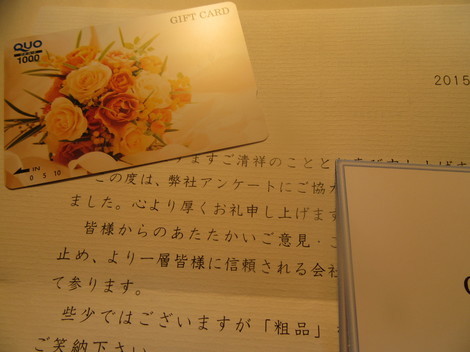 QUO
1000
GIFT CARD
IN
0 5 10
2015
ますご清祥のことと
この度は、弊社アンケートにご協
ました。心より厚くお礼申し上げます
皆様からのあたたかいご意見・
止め、より一層皆様に信頼される会社
て参ります。
些少ではございますが「粗品」
ご笑納下さい